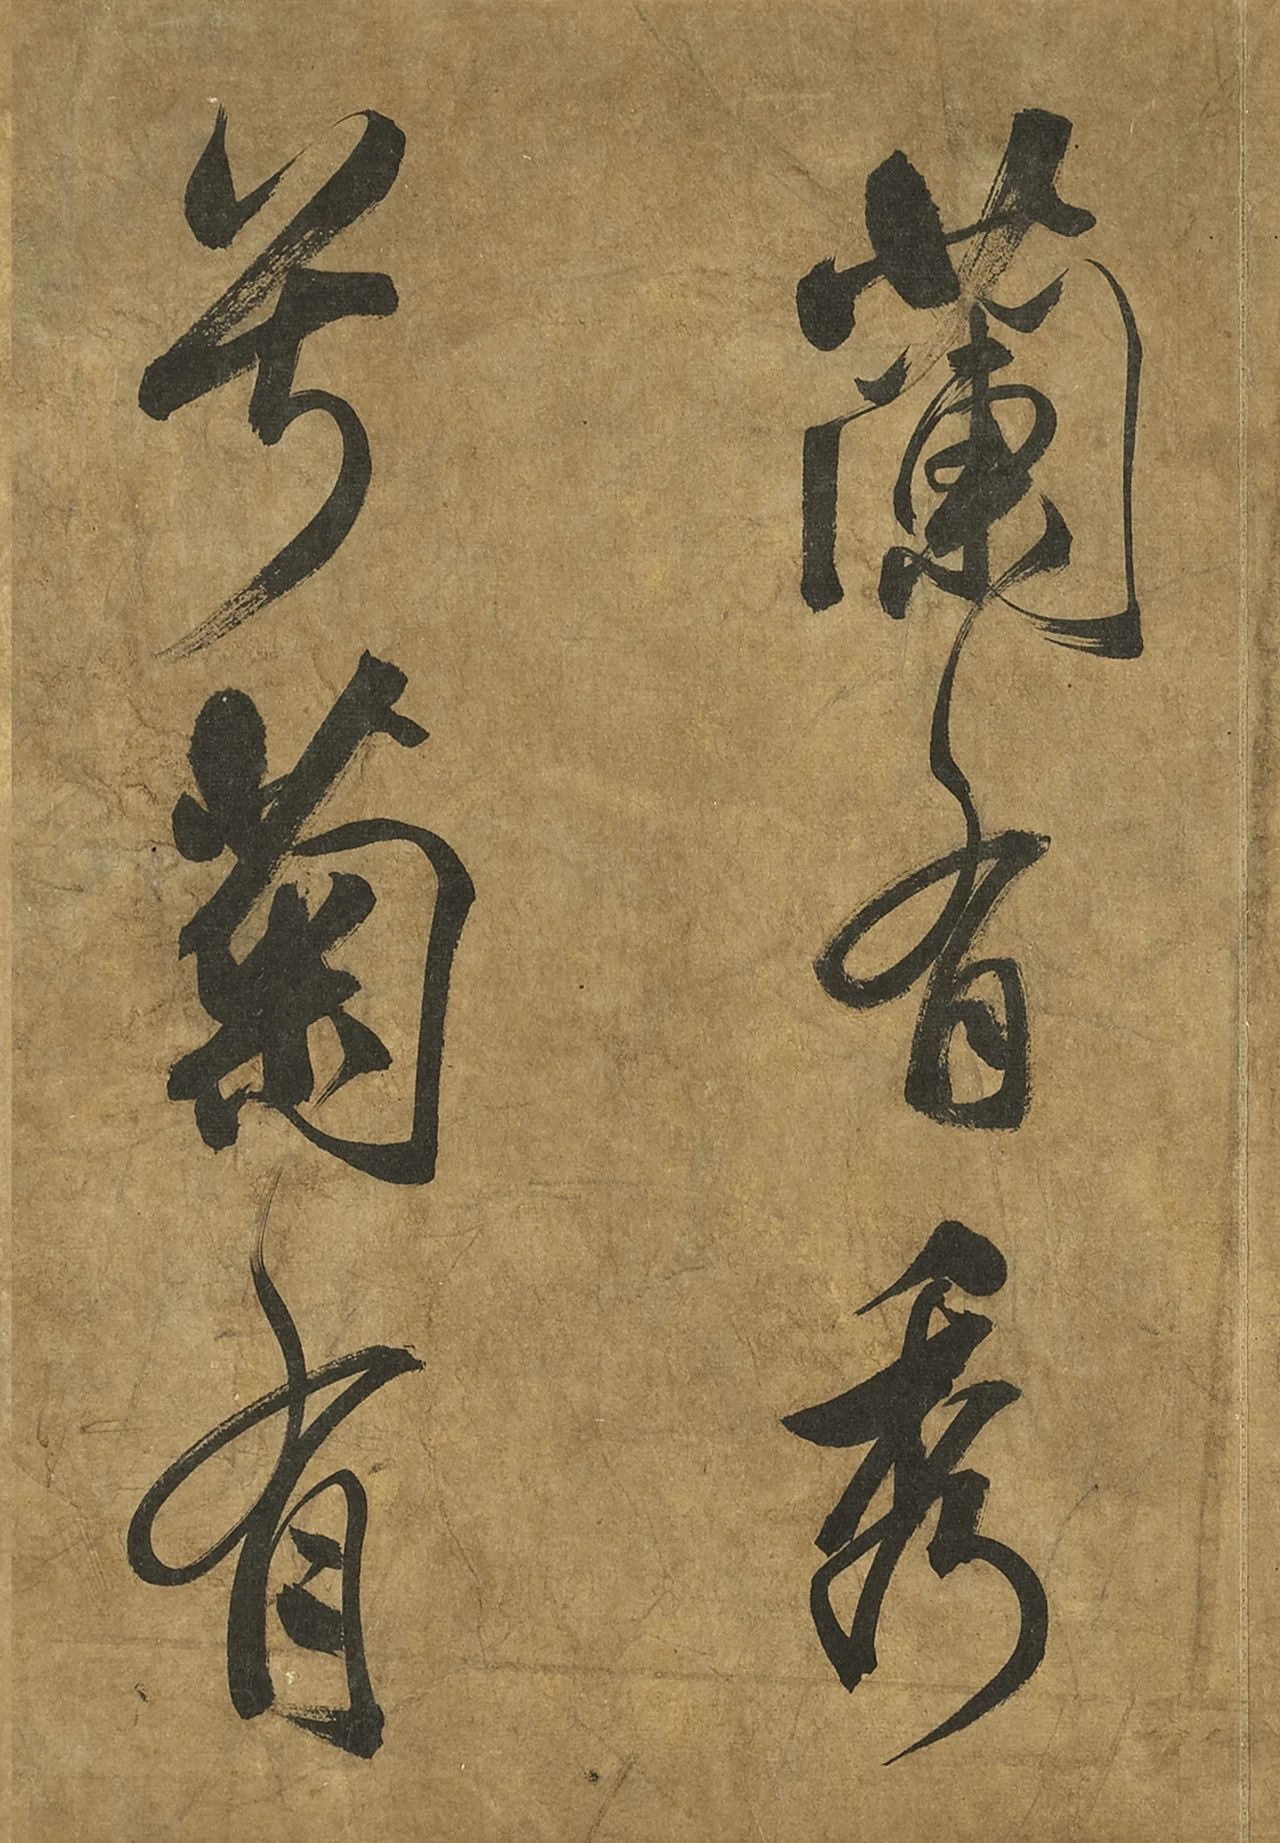 蘭有秀
兮菊有